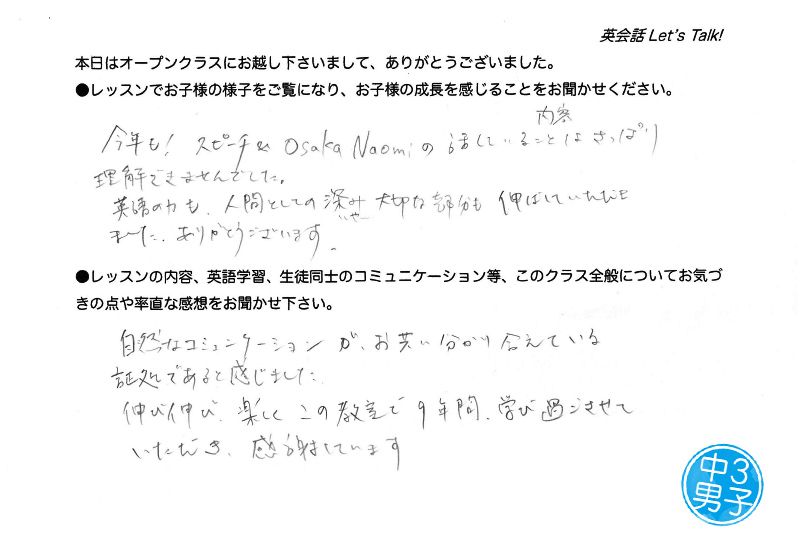 英会話 Let's Talk!
本日はオープンクラスにお越し下さいまして、ありがとうございました。
●レッスンでお子様の様子をご覧になり、お子様の成長を感じることをお聞かせください。
内容
今年も! スピーチ& Osaka Naomi の 話していることはさっぱり
理解できませんでした。
英語の力も、人間としての深み 大切な部分も 伸ばしていただき
ました。ありがとうございます。
●レッスンの内容、英語学習、生徒同士のコミュニケーション等、このクラス全般についてお気づ
きの点や率直な感想をお聞かせ下さい。
自然なコミュニケーション が、お互い分かり合えている
証拠であると感じました。
伸び伸び、楽しく この教室で 9年間、学び過ごさせて
いただき、感謝しています
中3
男子